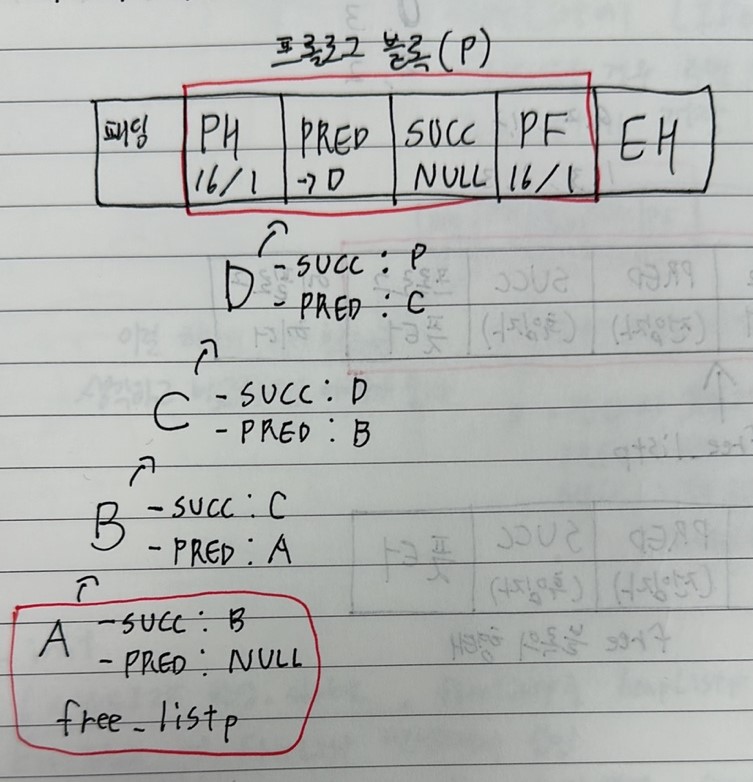 프롤로그 블록(P)
패딩 PH PRED SUCC PF EH
16/1 →D NULL 16/1
D - SUCC : P
- PRED : C
C - SUCC : D
- PRED : B
B - SUCC : C
- PRED : A
A - SUCC : B
- PRED : NULL
free_listp